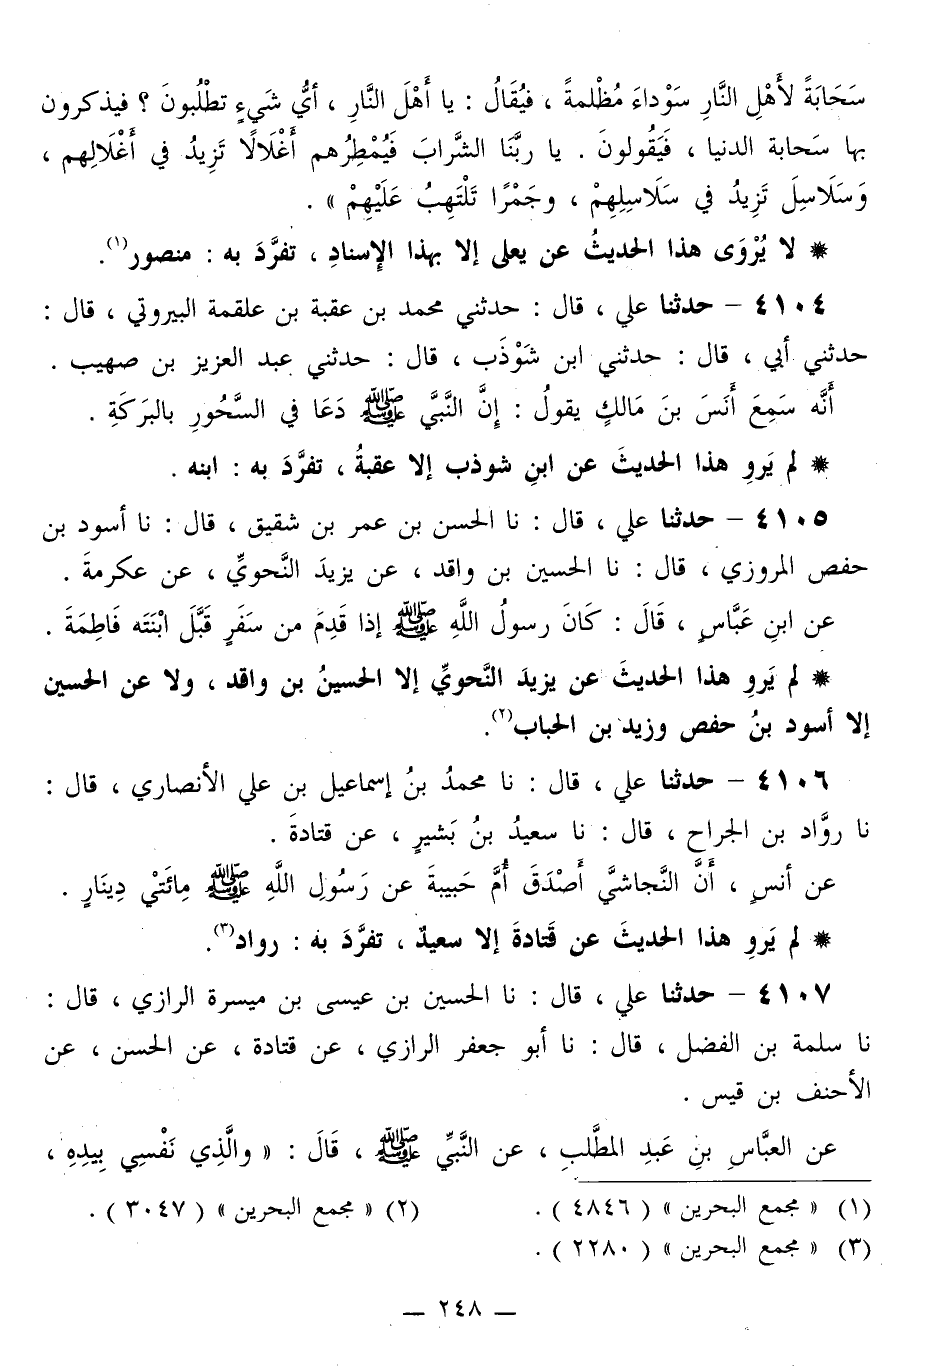 سَحَابَةً لأَهْلِ النَّارِ سَوْداءَ مُظْلمةً ، فيُقَالُ : يا أَهْلَ النَّارِ ، أيُّ شَيءٍ تطْلُبونَ ؟ فيذكرون
بها سَحابة الدنيا ، فَيَقُولونَ . يا ربَّنَا الشَّرابَ فَيُمْطِرُهم أَغْلَالًا تَزِيدُ في أَغْلَالِهم ،
وَسَلَاسِلَ تَزِيدُ في سَلَاسِلِهِمْ ، وجَمْرًا تَلْتَهِبُ عَلَيْهِمْ » .
* لا يُرْوَى هذا الحديثُ عن يعلى إلا بهذا الإسنادِ ، تفرَّدَ به : منصور(١).
٤١٠٤ – حدثنا علي ، قال : حدثني محمد بن عقبة بن علقمة البيروتي ، قال :
حدثني أبي ، قال : حدثني ابن شَوْذَب ، قال : حدثني عبد العزيز بن صهيب .
أَنَّه سَمِعَ أَنَسَ بنَ مَالكٍ يقولُ : إنَّ النَّبيَّ ﷺ دَعَا في السَّحُورِ بالبَرَكَةِ .
* لم يَروِ هذا الحديثَ عن ابنِ شوذب إلا عقبةُ ، تفرَّدَ به : ابنه .
٤١٠٥ – حدثنا علي ، قال : نا الحسن بن عمر بن شقيق ، قال : نا أسود بن
حفص المروزي ، قال : نا الحسين بن واقد ، عن يزيدَ النَّحويِّ ، عن عكرمةَ .
عن ابنِ عَبَّاسٍ ، قَالَ : كَانَ رسولُ اللَّهِ ﷺ إذا قَدِمَ من سَفَرٍ قَبَّلَ ابْنَته فَاطِمَةَ .
* لم يَروِ هذا الحديثَ عن يزيدَ النَّحويِّ إلا الحسينُ بن واقد ، ولا عن الحسين
إلا أسود بنُ حفص وزيد بن الحباب(٢).
٤١٠٦ – حدثنا علي ، قال : نا محمدُ بنُ إسماعيل بن علي الأنصاري ، قال :
نا روَّاد بن الجراح ، قال : نا سعيدُ بنُ بَشيرٍ ، عن قتادةَ .
عن أنسٍ ، أنَّ النَّجاشيَّ أَصْدَقَ أُمَّ حَبيبةَ عن رَسُولِ اللَّهِ ﷺ مِائَتَيْ دِينَارٍ .
* لم يَروِ هذا الحديثَ عن قَتادةَ إلا سعيدٌ ، تفرَّدَ به : رواد(٣).
٤١٠٧ – حدثنا علي ، قال : نا الحسين بن عيسى بن ميسرة الرازي ، قال :
نا سلمة بن الفضل ، قال : نا أبو جعفر الرازي ، عن قتادة ، عن الحسن ، عن
الأحنف بن قيس .
عن العبَّاسِ بنِ عَبدِ المطَّلبِ ، عن النَّبيِّ ﷺ ، قَالَ : « والَّذِي نَفْسي بِيدِهِ ،
(١) « مجمع البحرين » ( ٤٨٤٦ ) . (٢) « مجمع البحرين » ( ٣٠٤٧ ) .
(٣) « مجمع البحرين » ( ٢٢٨٠ ) .
— ٢٤٨ —